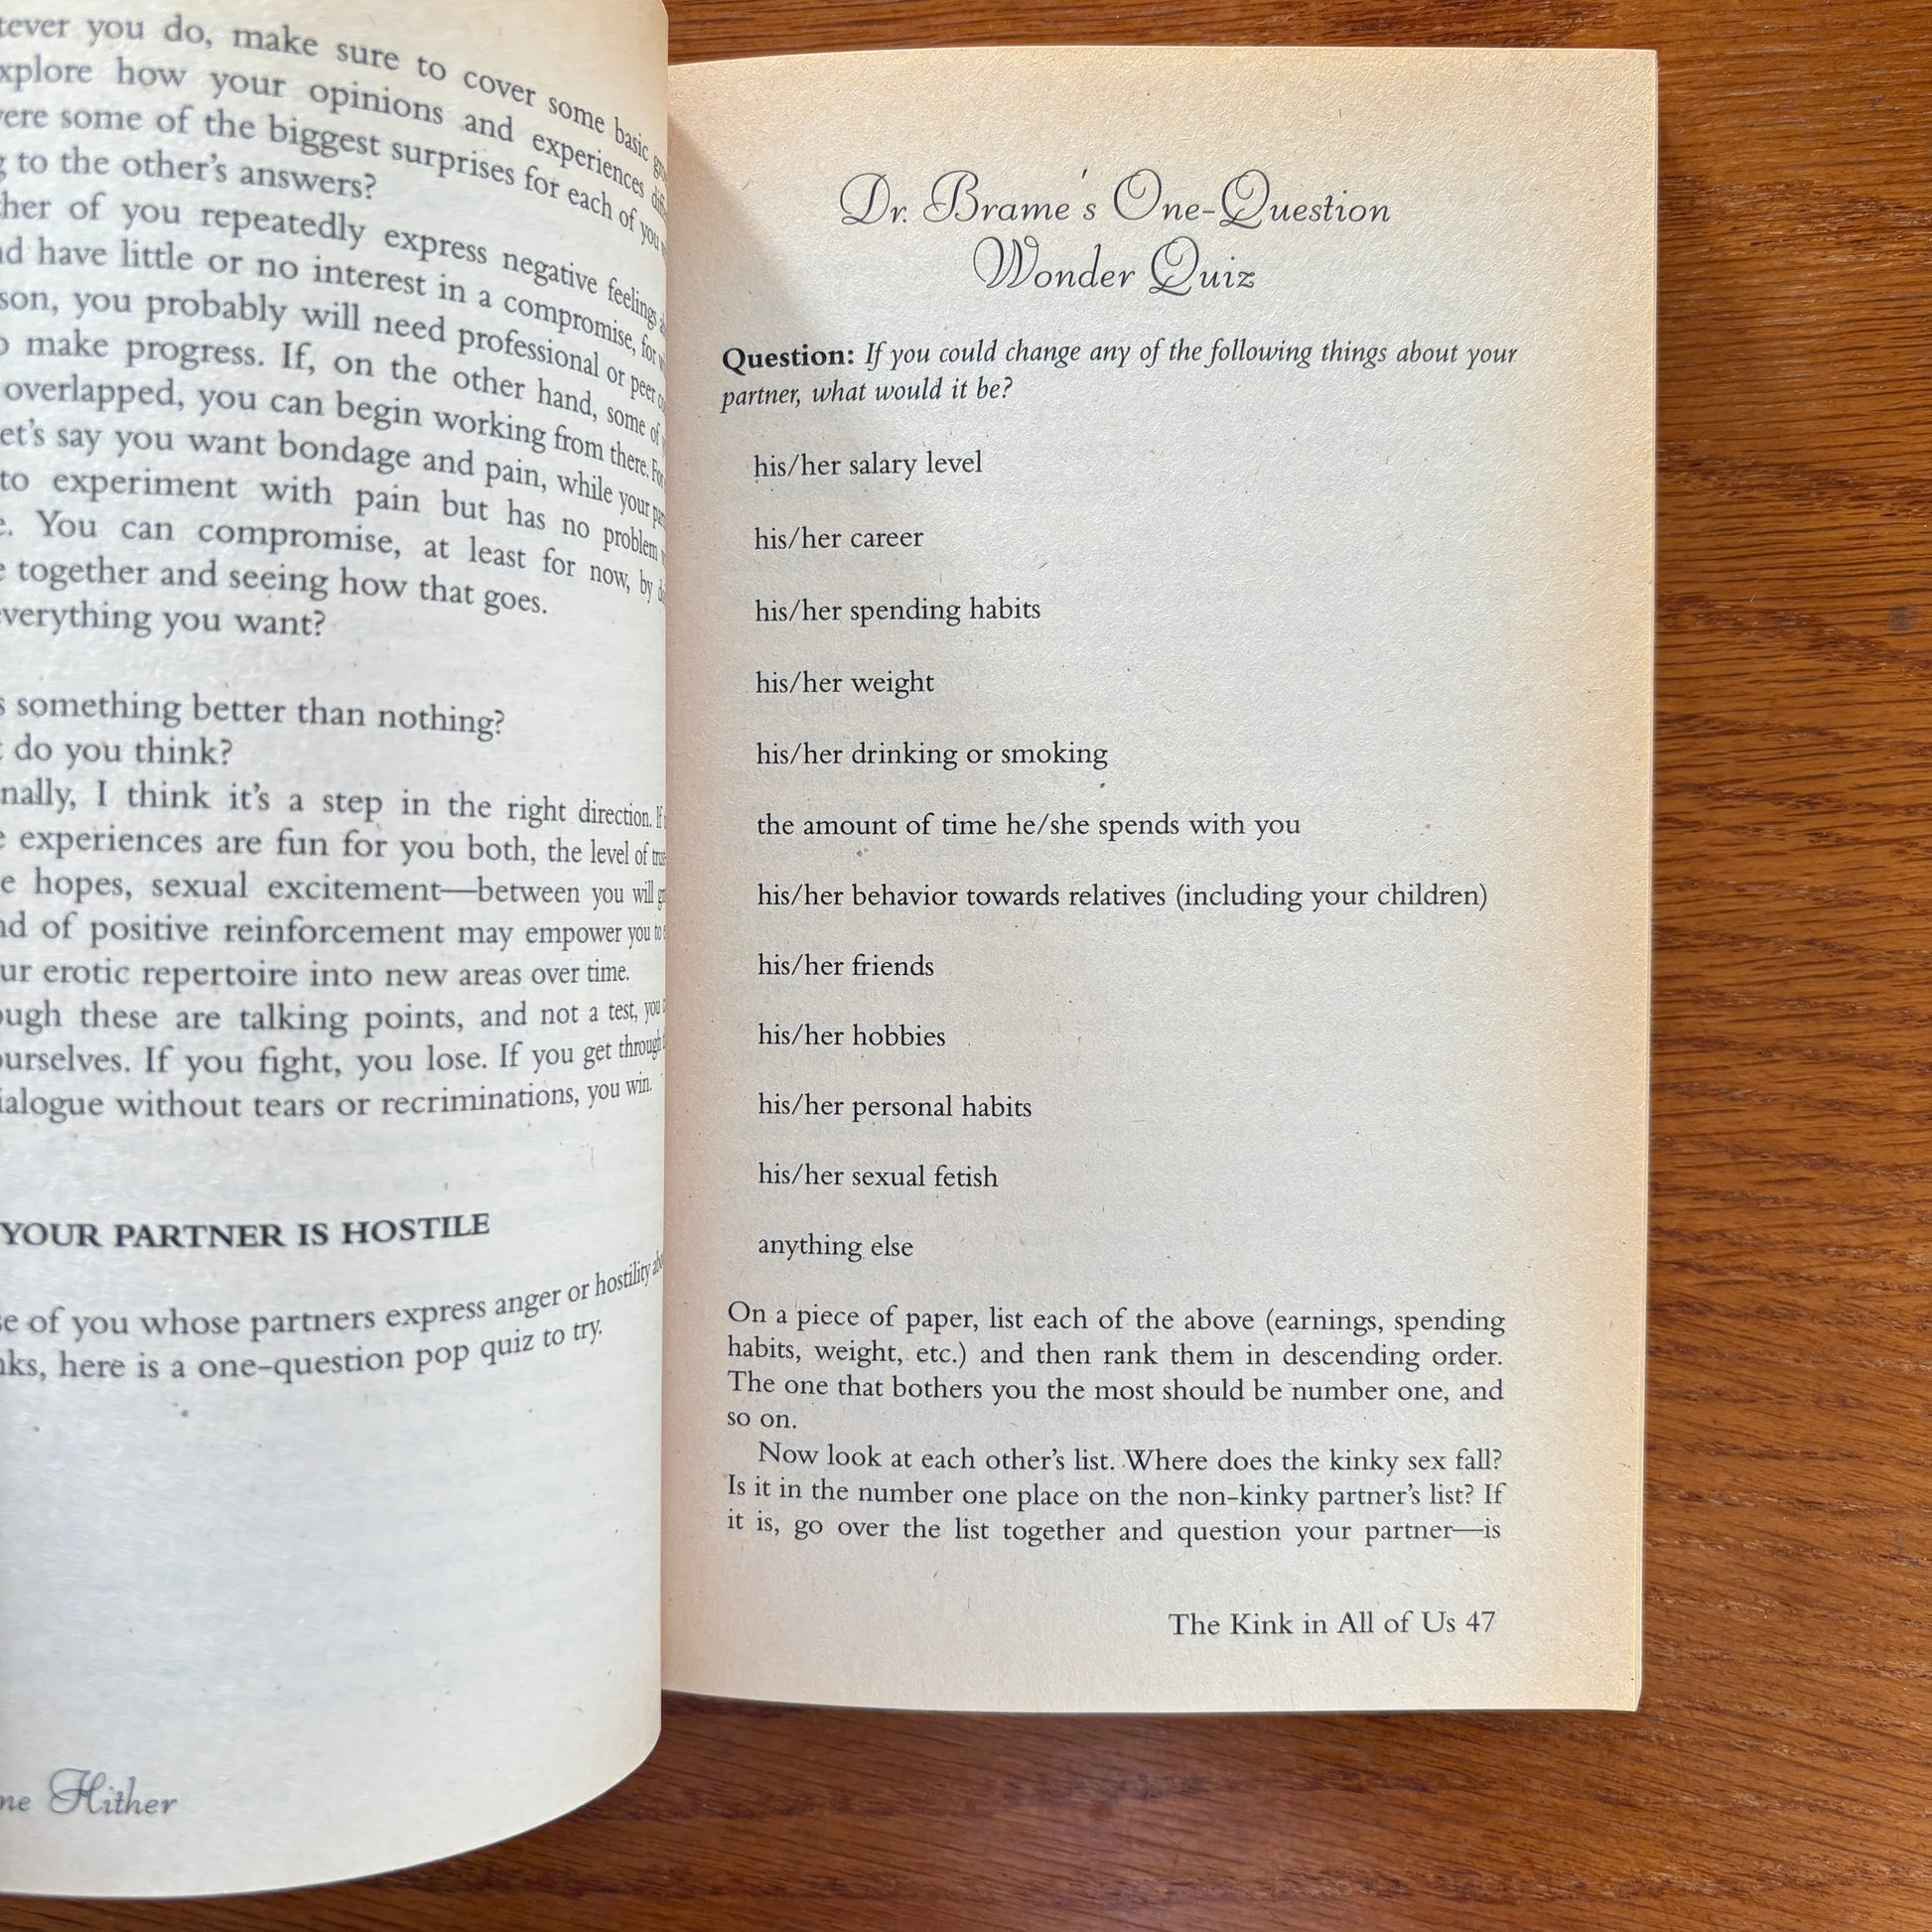 you do, make sure to cover some basic
how your opinions and experiences
some of the biggest surprises for each of you
to the other's answers?
of you repeatedly express negative feelings
have little or no interest in a compromise, for
you probably will need professional or peer
make progress. If, on the other hand, some of
overlapped, you can begin working from there. For
say you want bondage and pain, while your
to experiment with pain but has no problem
You can compromise, at least for now, by
together and seeing how that goes.
everything you want?
something better than nothing?
do you think?
I think it's a step in the right direction. If
experiences are fun for you both, the level of
hopes, sexual excitement—between you will
of positive reinforcement may empower you to
erotic repertoire into new areas over time.
these are talking points, and not a test, you
If you fight, you lose. If you get through
without tears or recriminations, you win.
YOUR PARTNER IS HOSTILE
of you whose partners express anger or hostility
here is a one-question pop quiz to try.
Hither
Dr. Brame's One-Question
Wonder Quiz
Question: If you could change any of the following things about your
partner, what would it be?
his/her salary level
his/her career
his/her spending habits
his/her weight
his/her drinking or smoking
the amount of time he/she spends with you
his/her behavior towards relatives (including your children)
his/her friends
his/her hobbies
his/her personal habits
his/her sexual fetish
anything else
On a piece of paper, list each of the above (earnings, spending
habits, weight, etc.) and then rank them in descending order.
The one that bothers you the most should be number one, and
so on.
Now look at each other's list. Where does the kinky sex fall?
Is it in the number one place on the non-kinky partner's list? If
it is, go over the list together and question your partner—is
The Kink in All of Us 47